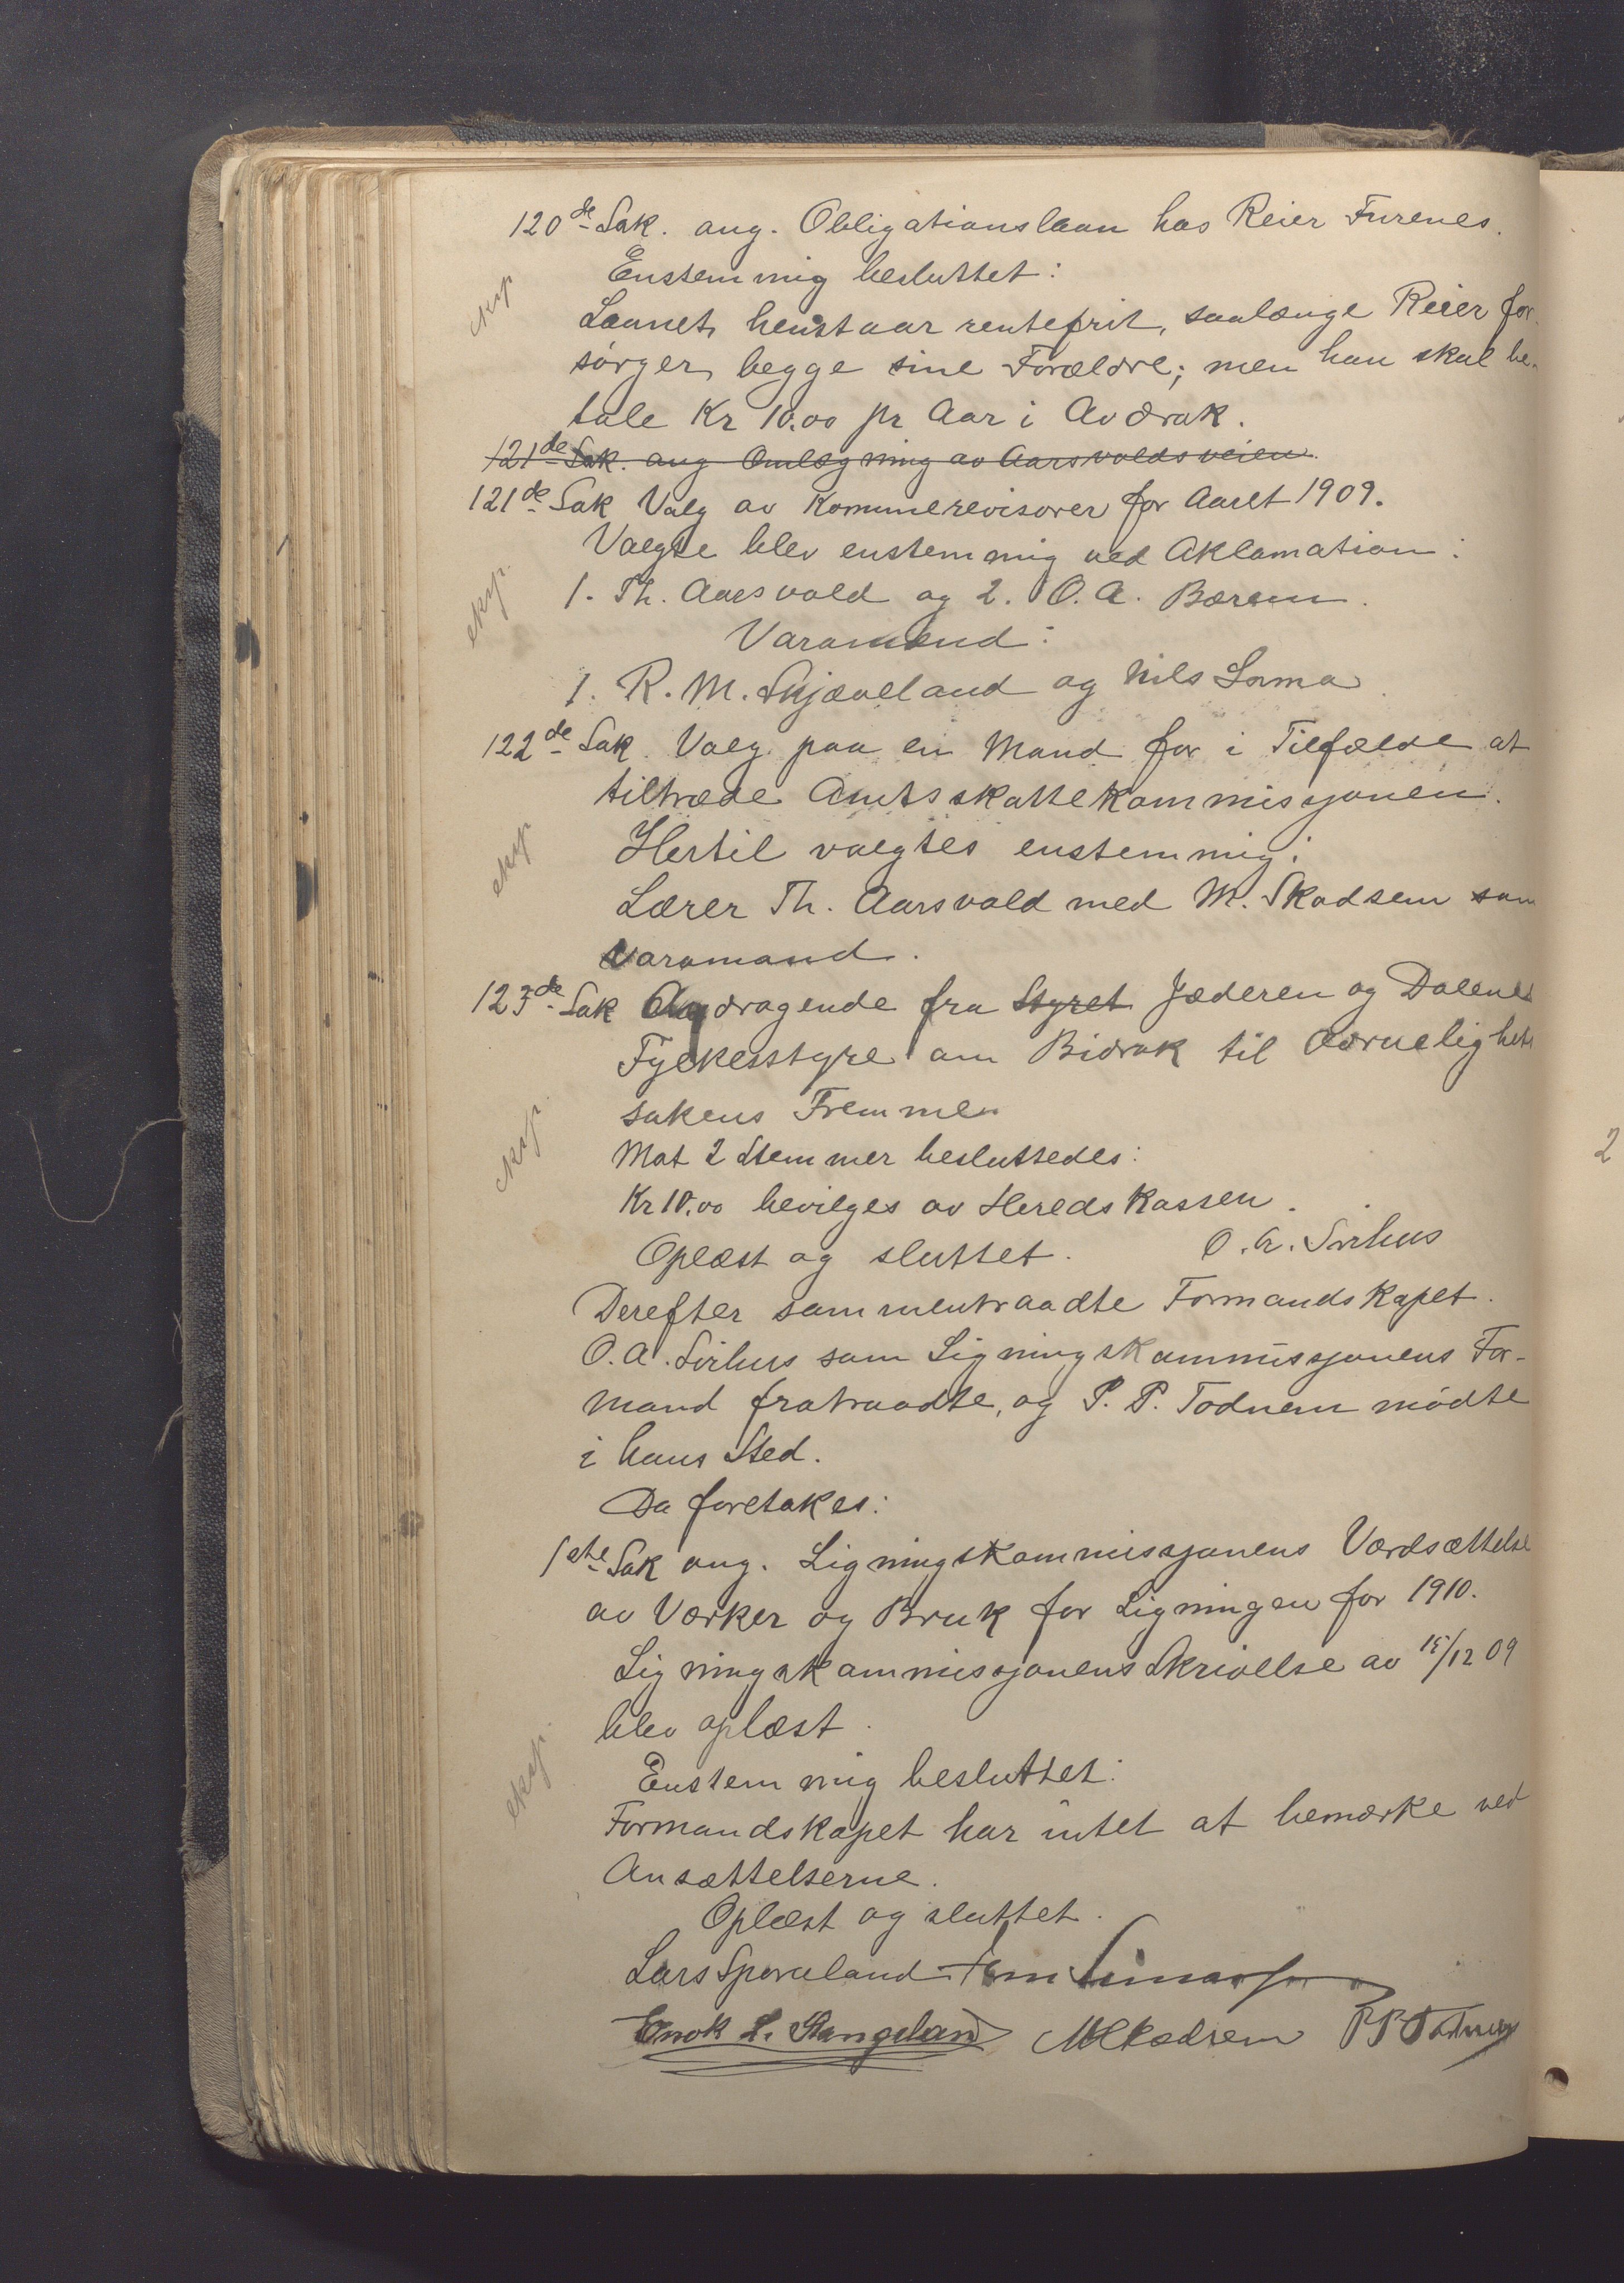 120de Sak. ang. Obligationslaan hos Reier Furenes.
Enstemmig besluttet:
eksp
Laanet henstaar rentefrit, saalænge Reier for-
sørger begge sine Forældre; men han skal be-
tale Kr 10.00 pr Aar i Avdrak.
121de Sak. ang Omlægning av Aarsvoldsveien.
121de Sak Valg av Kommunerevisorer for Aaret 1909.
Valgte blev enstemmig ved Aklamation:
eksp.
1. Th. Aarsvold og 2. O. A. Bærem.
Varamænd:
1. R. M. Skjæveland og Nils Lima
122de Sak. Valg paa en Mand for i Tilfælde at
tiltræde Amtsskattekommissjonen.
eksp
Hertil valgtes enstemmig:
Lærer Th. Aarsvold med M. Skadsem som
Varamand.
123de Sak Andragende fra Styret Jæderen og Dalenes
Fylkesstyre om Bidrak til Ædruelighets
sakens Fremme
eksp.
Mot 2 Stemmer besluttedes:
Kr 10.00 bevilges av Heredskassen.
Oplæst og sluttet. O. A. Sirhus
Derefter sammentraadte Formandskapet.
O. A. Sirhus som Ligningskommissjonens For-
mand fratraadte, og P. P. Todnem mødte
i hans Sted.
Da foretakes:
1ste Sak ang. Ligningskommissjonens Værdsættelse
av Værker og Bruk for Ligningen for 1910.
Ligningskommissjonens Skrivelse av 15/12 09
blev oplæst.
eksp.
Enstemmig besluttet:
Formandskapet har intet at bemærke ved
Ansættelserne.
Oplæst og sluttet.
Lars Sporaland
Enok L. Stangeland M Skadsem P P Todnem